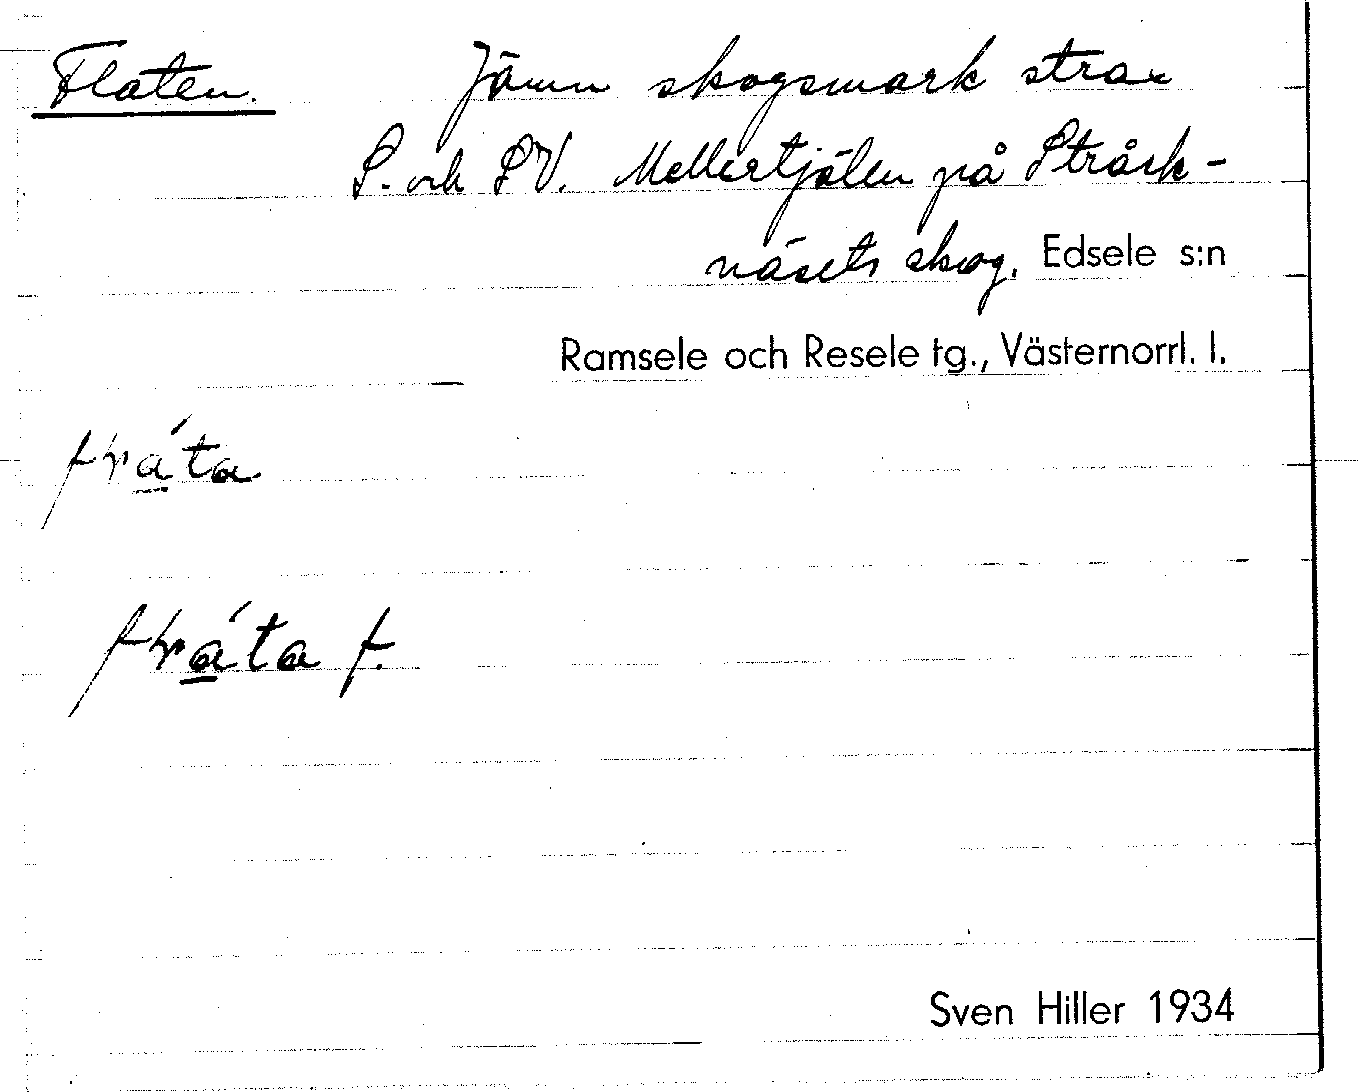 Flaten. Jämn skogsmark strax
S. och SV. Mellertjälen på Stråsk-
näsets skog. Edsele s:n
Ramsele och Resele tg., Västernorrl. l.
Sven Hiller 1934